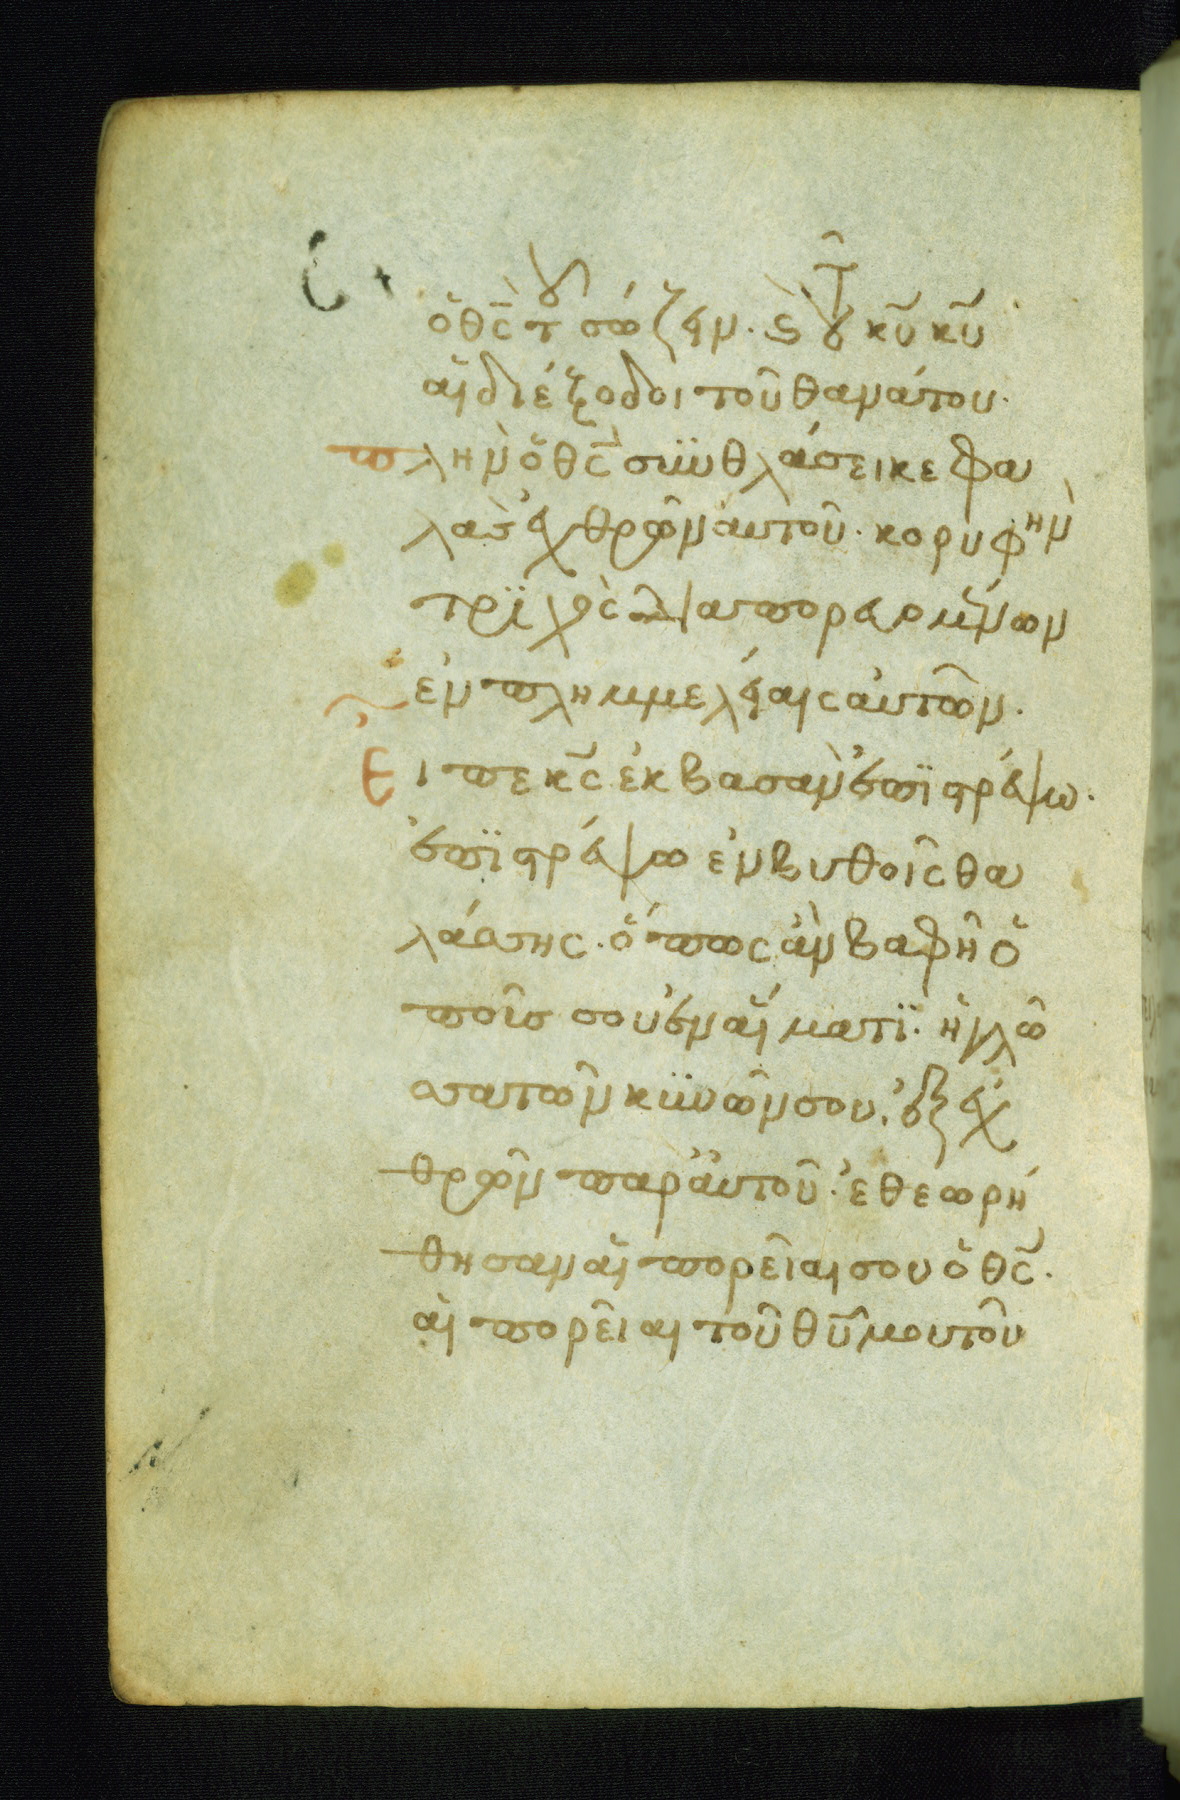 ὁ θς τ σώζειν. ς τοῦ κυ κυ
αἱ διέξοδοι τοῦ θανάτου.
πλὴν ὁ θς συνθλάσει κεφα
λὰς ἐχθρῶν αυτοῦ. κορυφὴν
τριχὸς διαπορευομένων
ἐν πλημμελείαις αὐτῶν.
Εἶπε κς ἐκ βασὰν ἐπϊστρέψω.
ἐπϊστρέψω ἐν βυθοῖς θα
λάσσης. ὅπως ἂν βαφῆ ὁ
ποῦς σου ἐν αἵματϊ. ἡ γλῶ
σσα τῶν κϋνῶν σου. ἐξ ἐχ
θρῶν παρ' ἀυτοῦ. ἐθεωρή
θησαν αἱ πορεῖαι σου ὁ θς.
αἱ πορεῖαι τοῦ θυ μου τοῦ